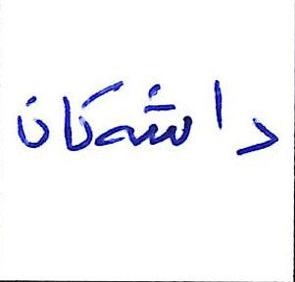 داشەکان